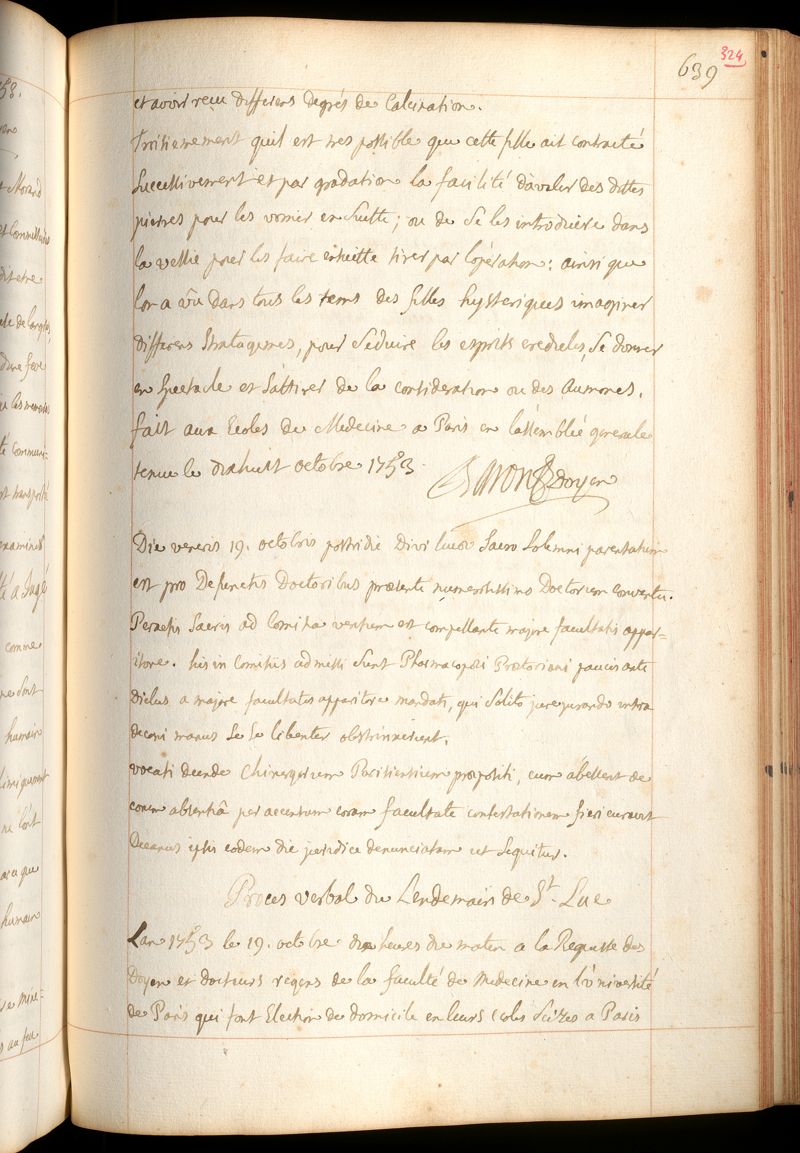 639
324
et avoir reçu differens degrés de Calcination.
Troisiemement quil est tres possible que cette fille ait contracté
Successivement et par gradation la facilité d'avaler des dittes
pierres pour les vomir en Suitte; ou de Se les introduire dans
la vessie pour les faire ensuitte tirer par lopération: ainsi que
lon a vû dans tous les tems des filles hysteriques imaginer
differens Stratagemes, pour Seduire les esprits credules, Se donner
en Spectacle et S'attirer de la consideration ou des Aumones.
fait aux Ecoles de Medecine a Paris en lassemblée generale
tenue le dixhuit octobre 1753. Baron doyen
Die veneris 19. octobris postridie Divi lucæ Sacro Solemni parentatum
est pro Defunctis Doctoribus præsente numerosissimo Doctorum conventu.
Peractis Sacris ad Comitia ventum est compellante majore facultatis appar=
itore. his in Comitiis admissi Sunt Pharmacopœi Prætoriani paucis ante
diebus a majore facultatis apparitore mandati, qui Solito jurejurando intra
decani manus Se Se libenter obstrinxerunt.
vocati deinde Chirurgorum Parisiensium præpositi, cum abessent de
eorum absentiâ per accensum coram facultate contestationem fieri curavit
Decanus ipsis eodem die juridice denunciatam ut Sequitur.
Proces verbal du Lendemain de St. Luc
Lan 1753 le 19. octobre dix heures du matin a la Requeste des
Doyen et docteurs regens de la faculté de Medecine en l'université
de Paris qui font Election de domicile en leurs Ecoles Scizes a Paris